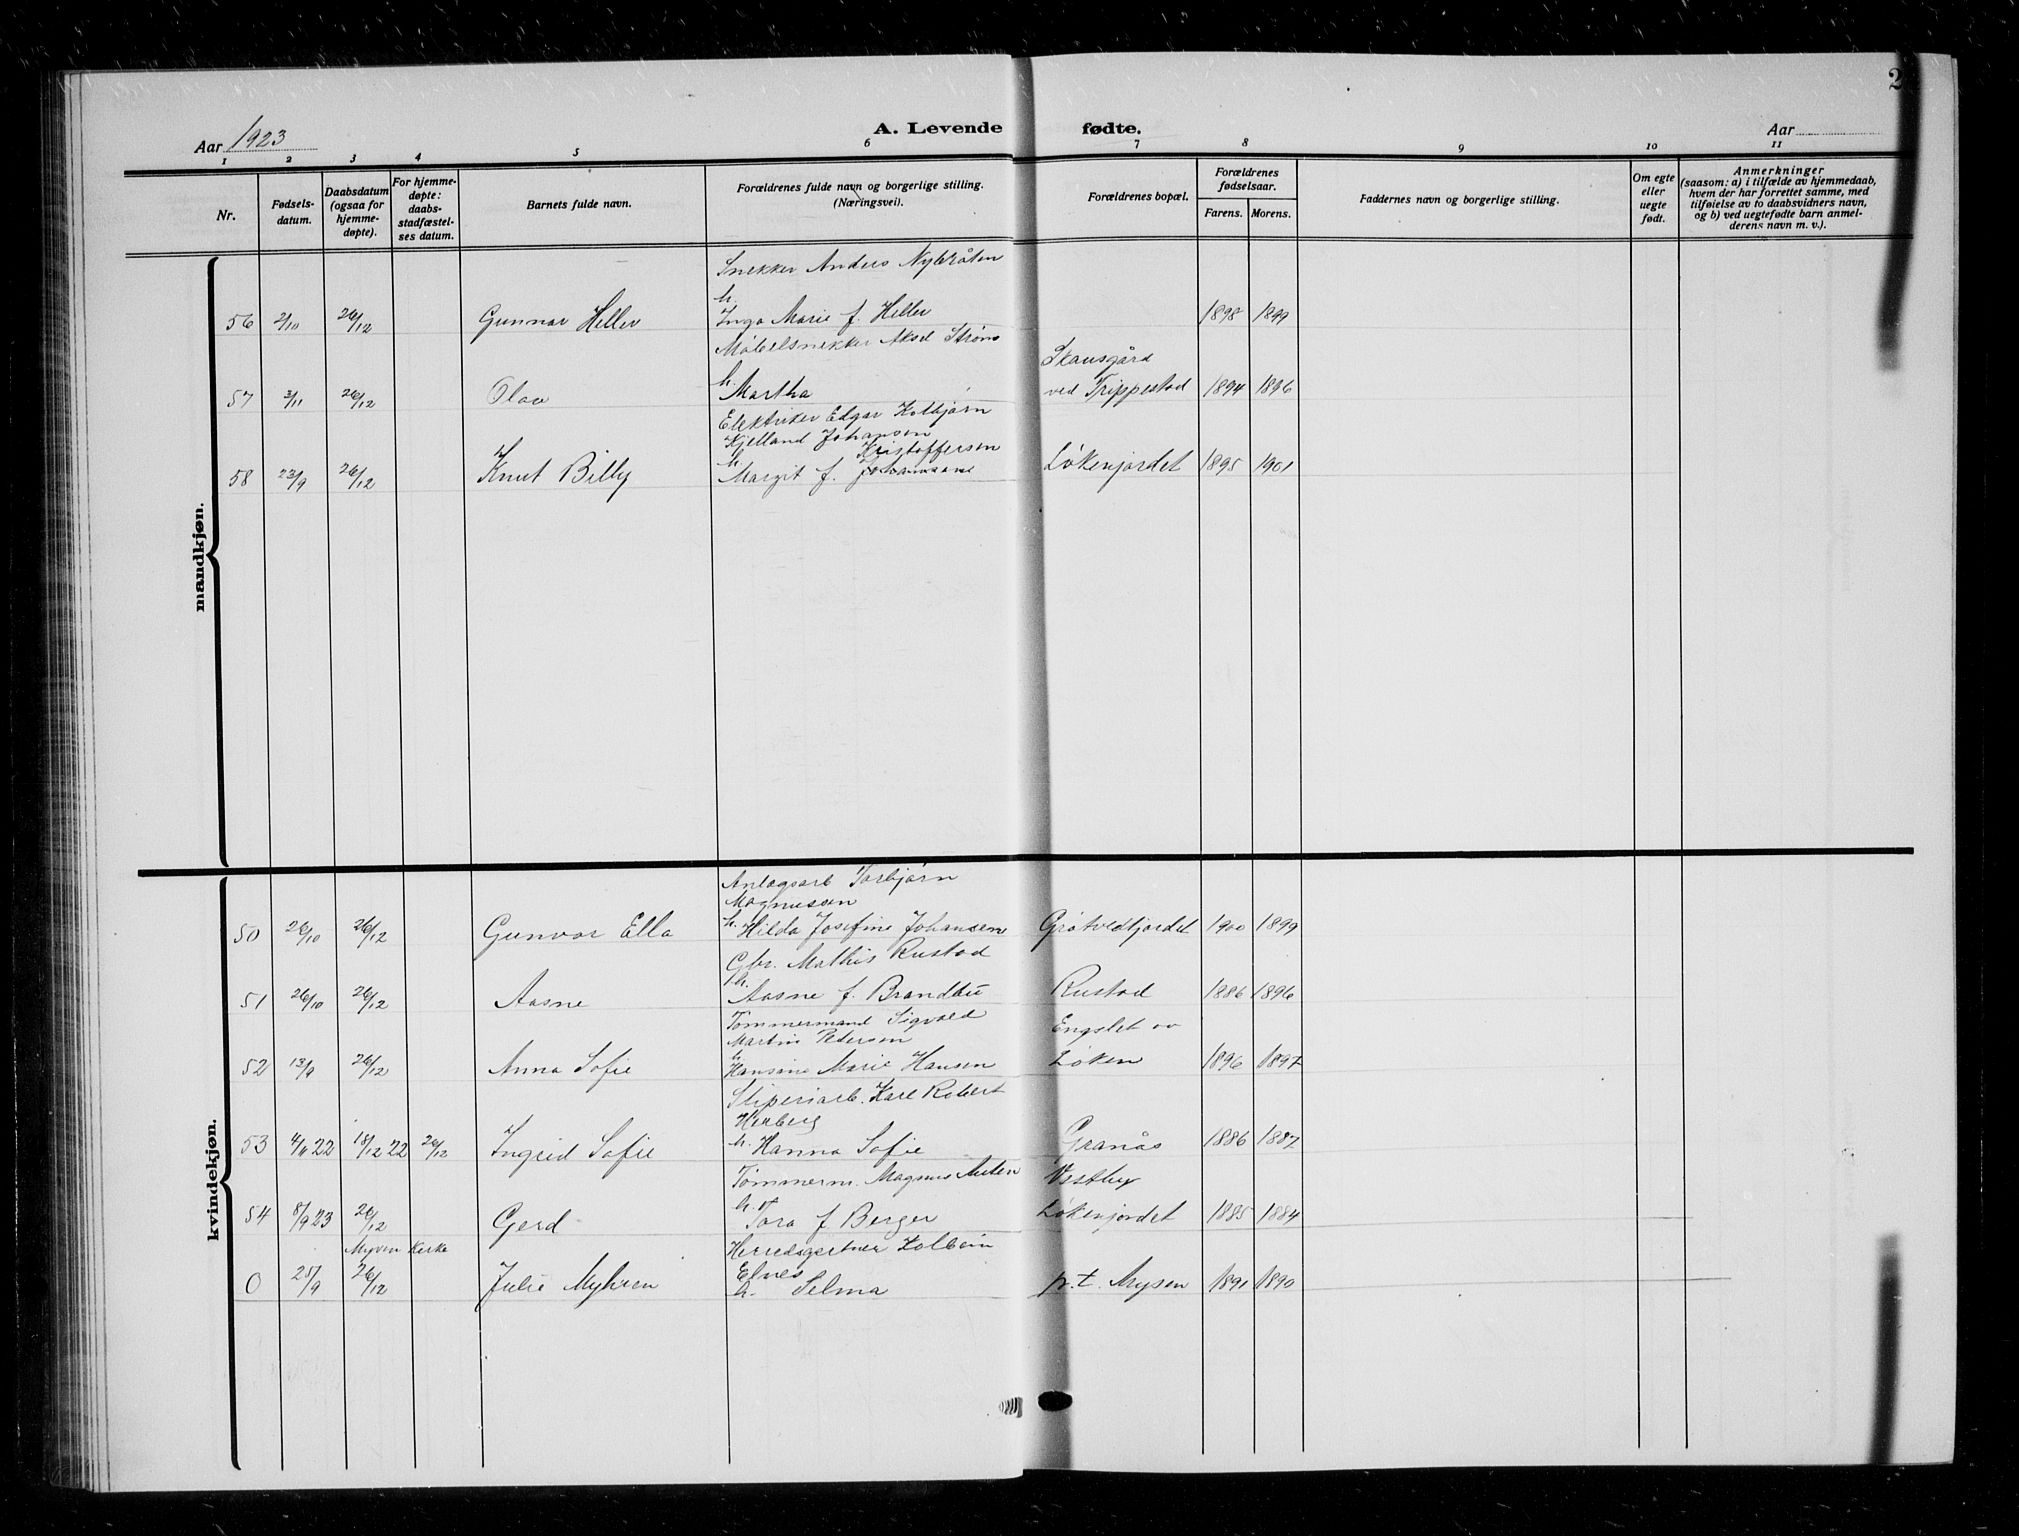 2
Aar 1923
A. Levende
fødte.
Aar
1 2 3 4 5 6 7 8 9 10 11
Nr.
Fødsels-
datum.
Daabsdatum
(ogsaa for
hjemme-
døpte).
For hjemme-
døpte:
daabs-
stadfæstel-
ses datum.
Barnets fulde navn.
Forældrenes fulde navn og borgerlige stilling.
(Næringsvei).
Forældrenes bopæl.
Forældrenes
fødselsaar.
Farens. Morens.
Faddernes navn og borgerlige stilling.
Om egte
eller
uegte
født.
Anmerkninger
(saasom: a) i tilfælde av hjemmedaab,
hvem der har forrettet samme, med
tilføielse av to daabsvidners navn,
og b) ved uegtefødte barn anmel-
derens navn m. v.).
mandkjøn.
Snekker Anders Nybråten
h.
56 2/10 26/12 Gunnar Heller Inga Marie f. Heller 1898 1899
Møbelsnekker Aksel Strøm
h. Skausgård
57 3/11 26/12 Olav Martha ved Trippestad 1894 1896
Elektriker Edgar Kolbjørn
Kjelland Johansen
h. Kristoffersen
58 23/9 26/12 Knut Billy Margit f. Johansens Løkenjordet 1895 1901
kvindekjøn.
Anlægsarb Torbjørn
Magnussen
50 26/10 26/12 Gunvor Ella h. Hilda Josefine Johansen Gråtvedtjordet 1900 1899
Gbr. Mathis Rustad
h.
51 26/10 26/12 Aasne Aasne f. Brandbu Rustad 1886 1896
Tømmermand Sigvald Engslet av
Martin Petersen
h.
52 13/9 26/12 Anna Sofie Hansine Marie Hansen Løken 1896 1897
Sliperiarb. Karl Robert
Herberg
53 4/11 22 18/12 22 26/12 Ingrid Sofie h. Hanna Sofie Granås 1886 1887
Tømmerm. Magnus Auten Vestby
54 8/9 23 26/12 Gerd h. Tora f Berger Løkenjordet 1885 1884
Mysen Kirke Herredsgartner Kolbein
Elnes
0 25/9 26/12 Julie Myhren h. Selma p.t. Mysen 1891 1890